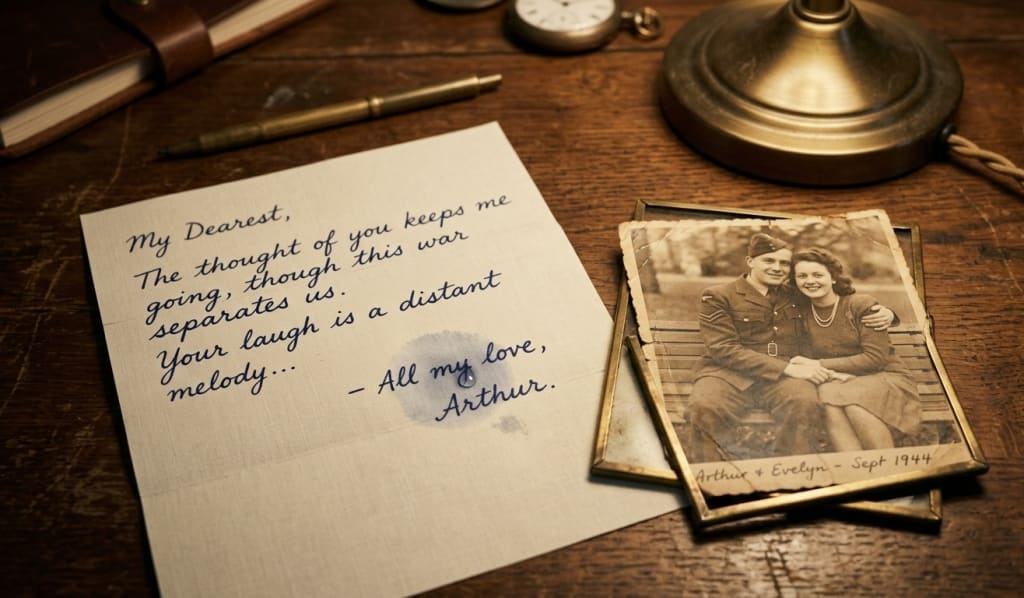 My Dearest,
The thought of you keeps me
going, though this war
separates us.
Your laugh is a distant
melody...
– All my love,
Arthur.
Arthur & Evelyn – Sept 1944